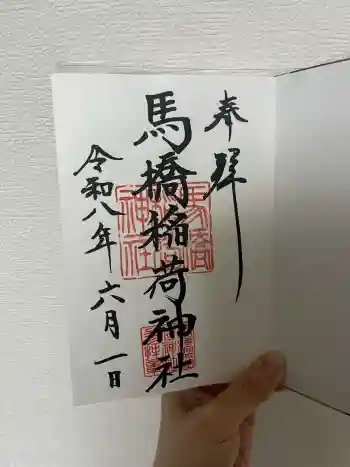 奉拝
馬橋稲荷神社
令和八年六月一日